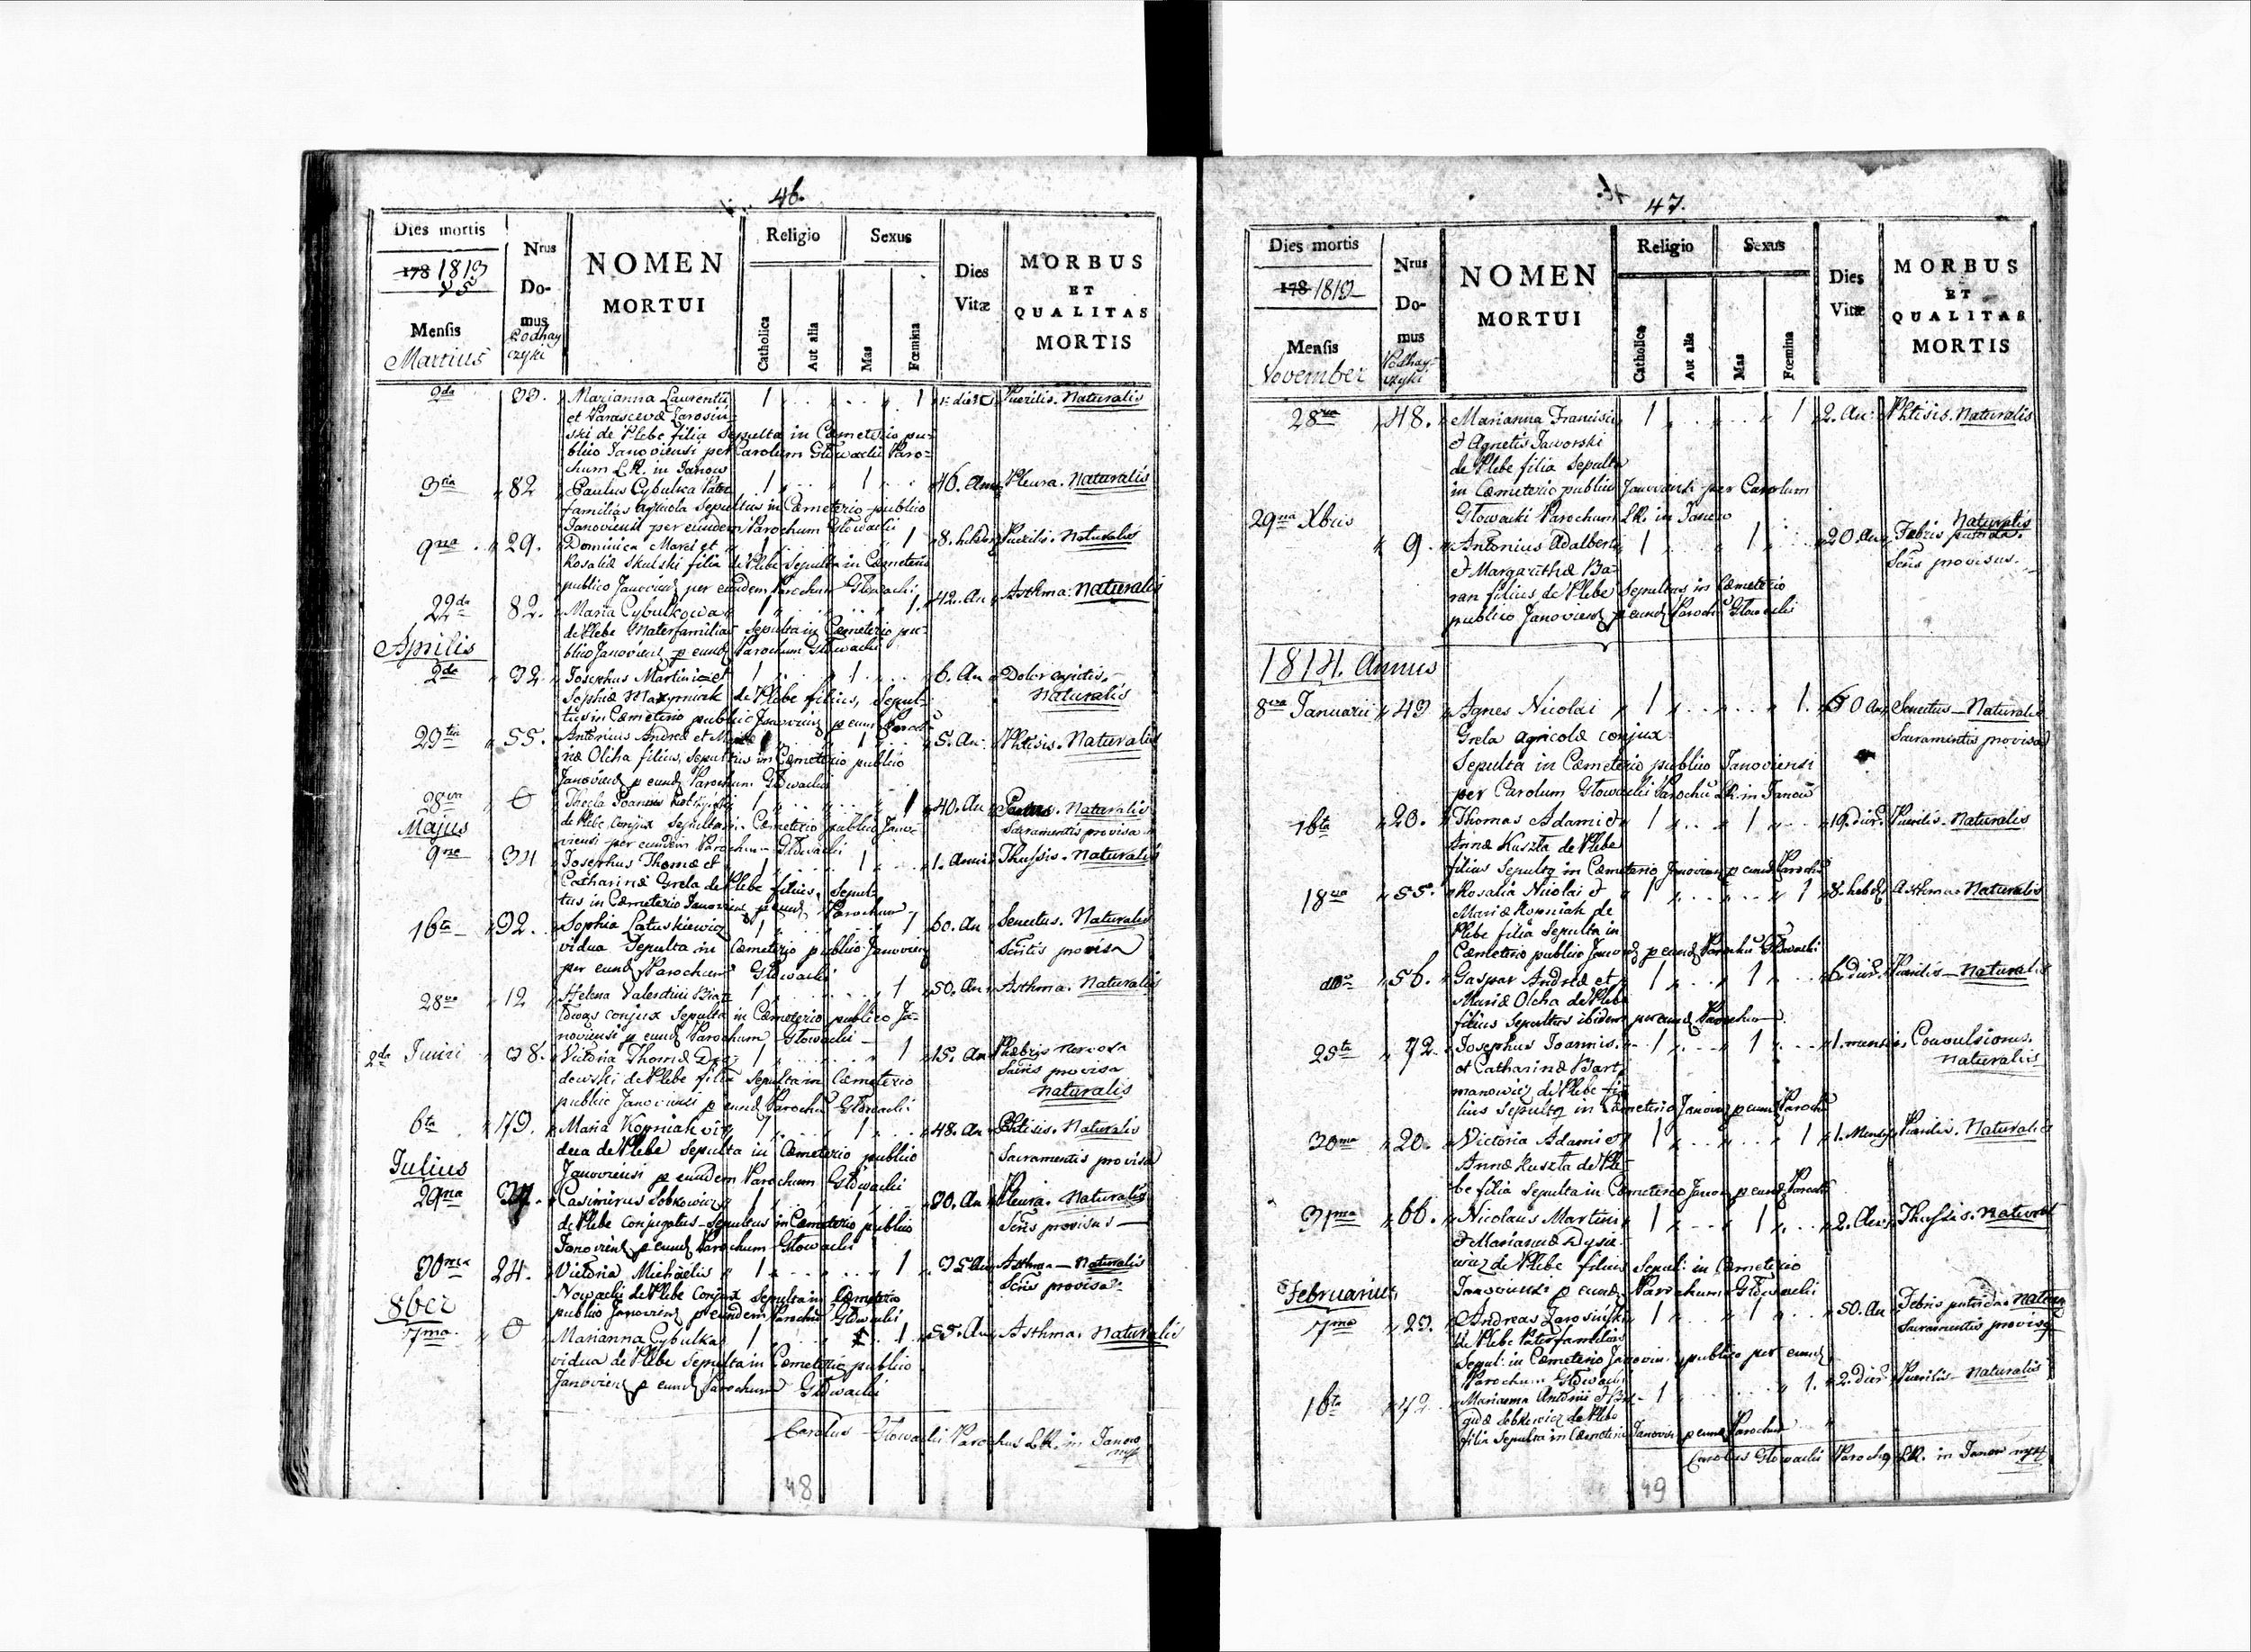 46.
Dies mortis
178 1813
Mensis
Martius
Nrus
Do-
mus
Podhay
czyki
NOMEN
MORTUI
Religio
Catholica
Aut alia
Sexus
Mas
Fœmina
Dies
Vitæ
MORBUS
ET
QUALITAS
MORTIS
2da 33. Marianna Laurentii 1 1 Puerilis. Naturalis
et Parascevæ Jarosiń-
ski de Plebe filia Sepulta in Cæmeterio pu-
blico Janoviensi per Carolum Głowacki Paro-
chum L.R. in Janow
3tia 82 Paulus Cybulka Pater 1 1 46. Ann. Pleura. Naturalis
familias agricola Sepultus in Cæmeterio publico
Janoviensi per eundem Parochum Głowacki
9na 29. Dominica Marci et 1 1 8. hebd. Puerilis. Naturalis
Rosaliæ Skulski filia de Plebe Sepulta in Cæmeterio
publico Janoviens per eundem Parochum Głowacki
22da 82. Maria Cybulkowa 1 1. 42. An Asthma. Naturalis
de Plebe Materfamilias Sepulta in Cæmeterio pu-
blico Janoviens p eund Parochum Głowacki
Aprilis
2da 32 Josephus Martini et 1 1 6. An Dolor capitis.
Sophiæ Maxymiak de Plebe filius, Sepul- Naturalis
tus in Cæmeterio publico Janoviens p eund Paroch
23tia 55. Antonius Andreæ et 1 5. An. Phtisis. Naturalis
næ Olcha filius, sepultus in Cæmeterio publico
Janoviens p eund Parochum Głowacki
28va 0 Thecla Joannis 1 1 40. An Naturalis
de Plebe Conjux Sepulta in Cæmeterio publico Jano- Sacramentis provisa
viensi per eundem Parochum Głowacki
Majus
9na 34 Josephus Thomæ et 1 1 1. Anni Thussis. Naturalis
Catharinæ Grela de Plebe filius, Sepul-
tus in Cæmeterio Janoviens p eund Parochum
16ta 92. Sophia Latuskiewicz 1 1 60. An Senectus. Naturalis
vidua Sepulta in Cæmeterio publico Janoviens Scntis provisa
per eund Parochum Głowacki
28va 12 Helena Valentini 1 1 50. An Asthma. Naturalis
conjux Sepulta in Cæmeterio publico Ja-
noviensi p eund Parochum Głowacki
2da Junii 38. Victoria Thomæ 1 1 15. An Phæbris nervosa
dowski de Plebe filia Sepulta in Cæmeterio Scris provisa
publico Janoviensi p eund Paroch Głowacki Naturalis
6ta 73. Maria Kopniak vi- 1 1 48. An Phtisis. Naturalis
dua de Plebe Sepulta in Cæmeterio publico Sacramentis provisa
Janoviensi p eundem Parochum Głowacki
Julius
29na Casimirus Sobkowicz 1 1 30. An Pleura. Naturalis
de Plebe Conjugatus Sepultus in Cæmeterio publico Scris provisus
Janoviens p eund Parochum Głowacki
30ma 24. Victoria Michaelis 1 1 35 An Asthma Naturalis
Nowacki de Plebe Conjux Sepulta in Cæmeterio Scris provisa
publico Janoviens p eundem Paroch Głowacki
8ber
7ma 0 Marianna Cybulka 1 1 55. An. Asthma. Naturalis
vidua de Plebe Sepulta in Cæmeterio publico
Janoviens p eund Parochum Głowacki
Carolus Głowacki Parochus L.R. in Janow mpp
48
47.
Dies mortis
178 1813
Mensis
November
Nrus
Do-
mus
Podhay-
czyki
NOMEN
MORTUI
Religio
Catholica
Aut alia
Sexus
Mas
Fœmina
Dies
Vitæ
MORBUS
ET
QUALITAS
MORTIS
28va 48. Marianna Francisci 1 1 2. An. Phtisis. Naturalis
et Agnetis Jaworski
de Plebe filia Sepulta
in Cæmeterio publico Janoviensi per Carolum
Głowacki Parochum L.R. in Janow
29na Xbris
9. Antonius Adalberti 1 1 20 An. Febris putrida. Naturalis
et Margarithæ Ba- Scris provisus.
ran filius de Plebe Sepultus in Cæmeterio
publico Janoviens p eund Paroch Głowacki
1814. Annus
8va Januarii 43 Agnes Nicolai 1 1. 60 An. Senectus Naturalis
Grela Agricolæ conjux Sacramentis provisa
Sepulta in Cæmeterio publico Janoviensi
per Carolum Głowacki Parochu LR. in Janow
16ta 20. Thomas Adami et 1 1 19. dier. Puerilis Naturalis
Annæ Kuszta de Plebe
filius Sepultq in Cæmeterio Janoviens p eund Parochu
18va 55. Rosalia Nicolai et 1 1 8. hebd. Asthma. Naturalis
Mariæ Kopniak de
Plebe filia Sepulta in
Cæmeterio publico Janov p eund Parochu Głowacki
56. Gaspar Andreæ et 1 1 6. dier. Puerilis Naturalis
Mariæ Olcha de Plebe
filius Sepultus ibidem per eund Parochum
25ta 72. Josephus Joannis 1 1 1. mensis Convulsiones.
et Catharinæ Bart- Naturalis
manowicz de Plebe fi-
lius Sepultq in Cæmeterio Janovi p eund Paroch
30ma 20. Victoria Adami et 1 1 1. Mensis Puerilis. Naturalis
Annæ Kuszta de Ple-
be filia Sepulta in Cæmeterio Janov p eund Paroch
31ma 66. Nicolaus Martini 1 1 2. An. Thussis. Natural
et Mariannæ
wicz de Plebe filius Sepul: in Cæmeterio
Janoviensi p eund Parochum Głowacki
Februarius
7ma 23. Andreas Jarosiński 1 1 50. An Febris putrida. Natur
de Plebe Paterfamilias Sacramentis provisq
Sepul: in Cæmeterio Janovien publico per eund
Parochum Głowacki
16ta 42 Marianna Antonii et 1 1. 2. dier Puerilis Naturalis
gidæ Sobkowicz de Plebe
filia Sepulta in Cæmeterio Janovi p eund Parochum
Carolus Głowacki Parochq LR. in Janow mpp
49